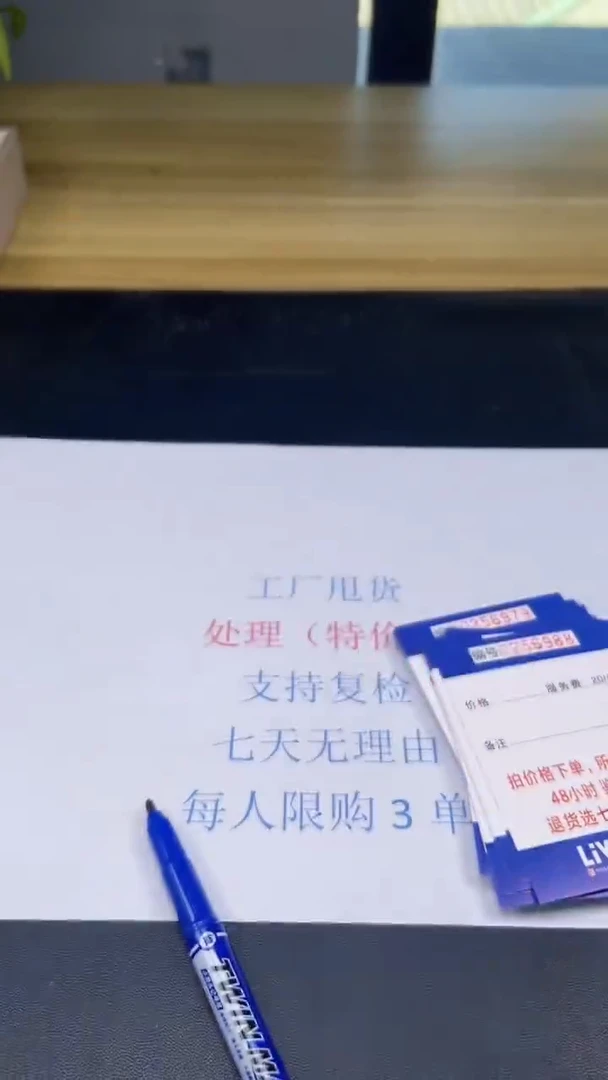 工厂甩货
处理（特价
支持复检
七天无理由
每人限购 3 单
编号
价格 服务费 20/
备注
拍价格下单，所
48小时
退货选七
LiV
TWIN MA